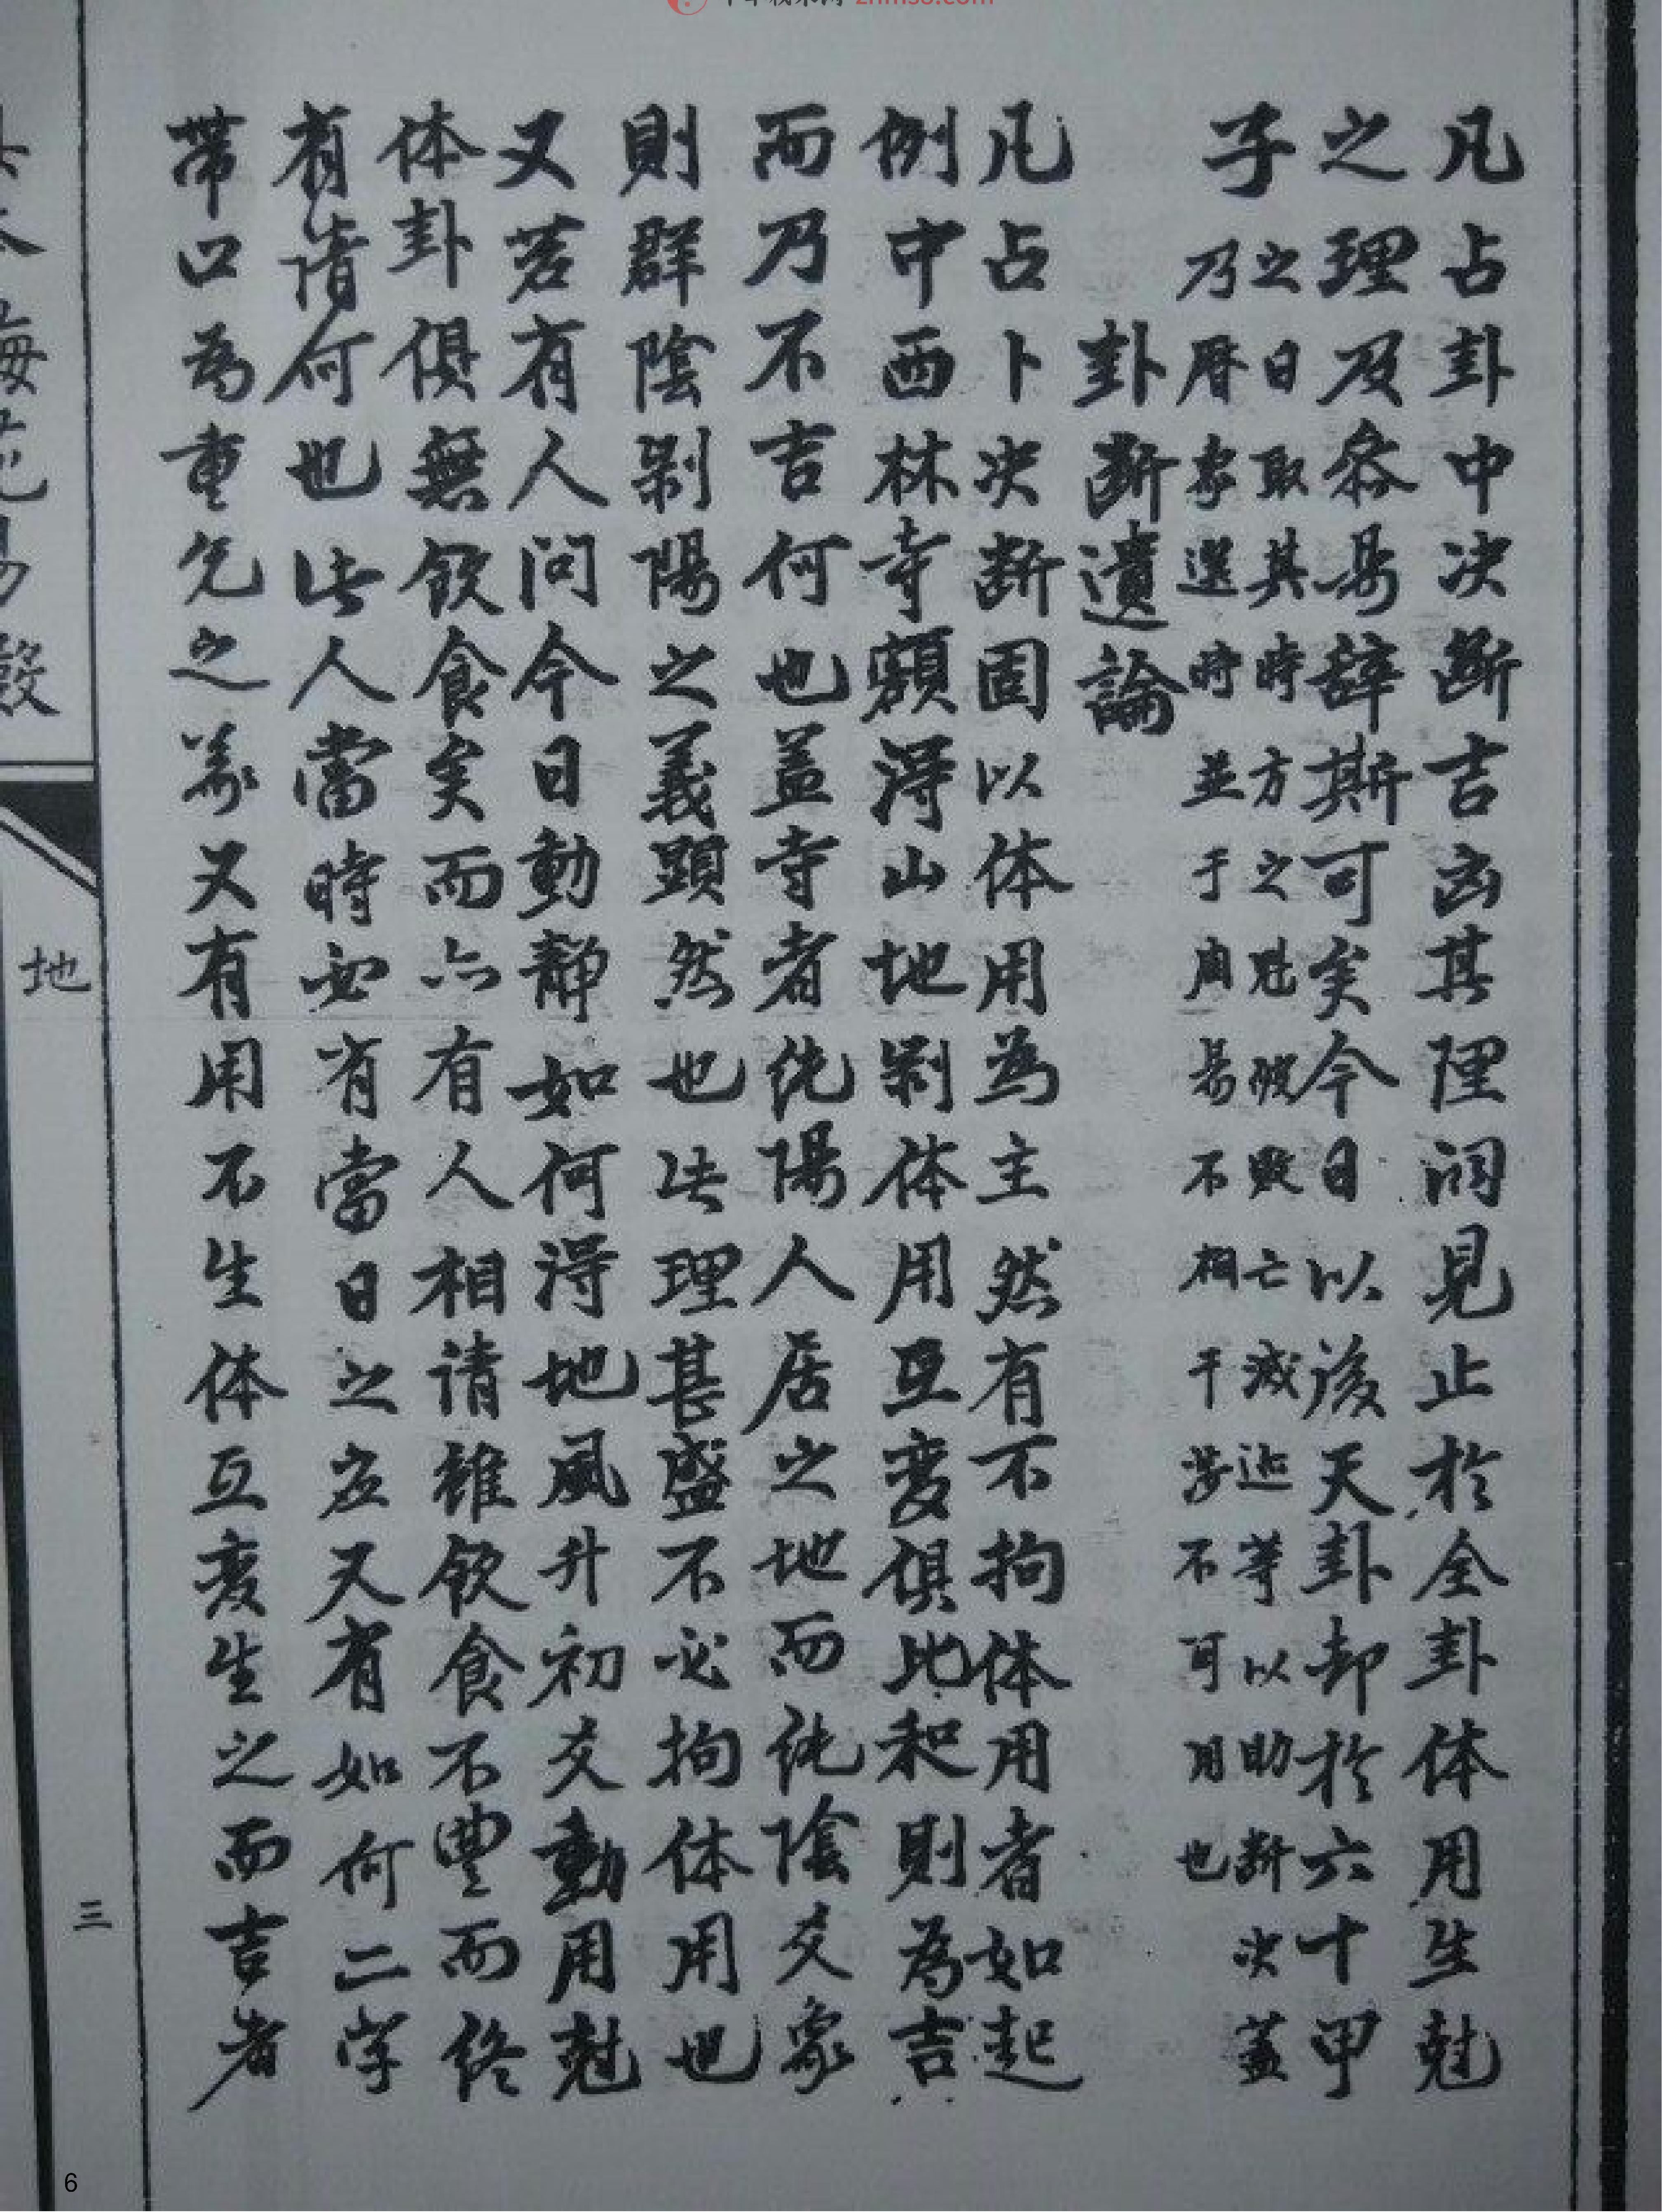 凡占卦中决断吉凶其理洞見止於全卦体用生尅
之理及爻易辞斯可矣今日以後天卦却於六十甲
子之日取其時方之尅破败亡減迯等以助断决盖
乃曆家選時時並于周易不相干学不可用也
卦断遺論
凡占卜决断固以体用為主然有不拘体用者如起
例中西林寺額得山地剥体用互变俱比和則為吉
而乃不吉何也盖寺者纯陽人居之地而纯陰爻象
則群陰剥陽之義顕然也此理甚盛不必拘体用也
又若有人问今日動靜如何得地風升初爻動用尅
体卦俱無飲食矣而亦有人相请雖飲食不豐而终
有请何也此人當時必有當日之应又有如何二字
带口為重兑之義又有用不生体互变生之而吉者
地
三
6